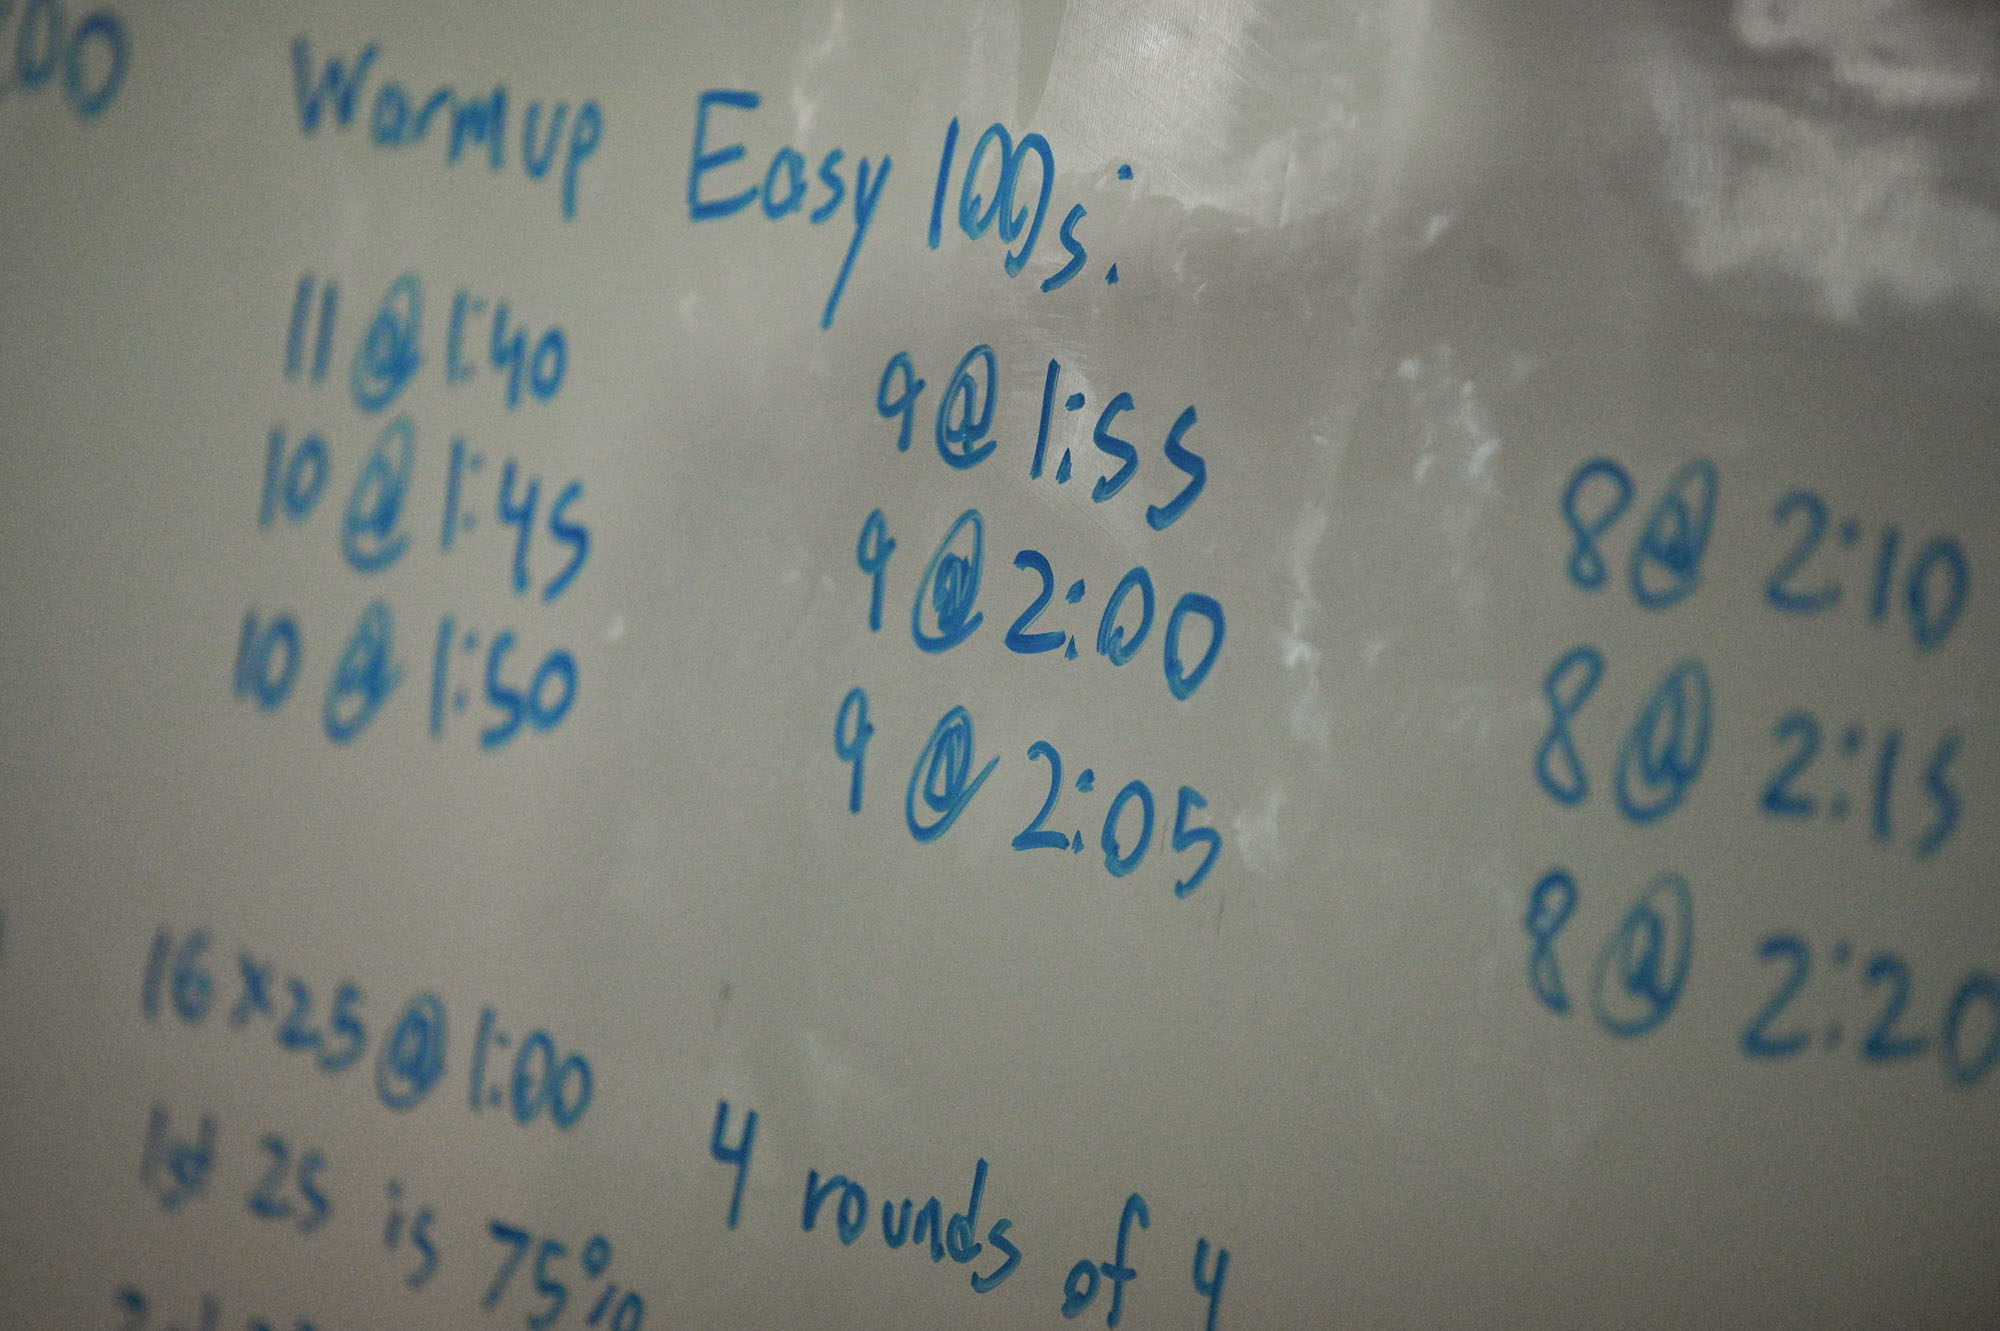 00 Warmup Easy 100s:
11 @ 1:40
10 @ 1:45
10 @ 1:50
9 @ 1:55
9 @ 2:00
9 @ 2:05
8 @ 2:10
8 @ 2:15
8 @ 2:20
16 x 25 @ 1:00
4 rounds of 4
25 is 75%